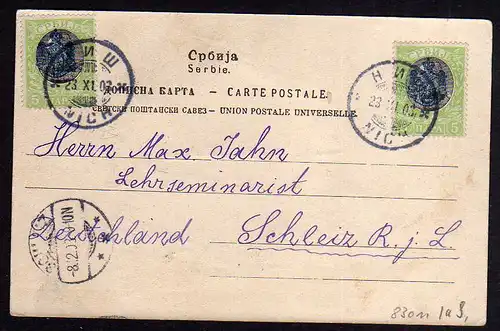 Србија
Serbie.
ДОПИСНА КАРТА – CARTE POSTALE.
СВЕТСКИ ПОШТАНСКИ САВЕЗ – UNION POSTALE UNIVERSELLE.
НИШ
23 XI 03
NICH
НИШ
23 XI 03
NICH
5
Herrn Max Jahn
Lehrseminarist
Deutschland
Schleiz R. j. L.
SCHLEIZ
-8.12.